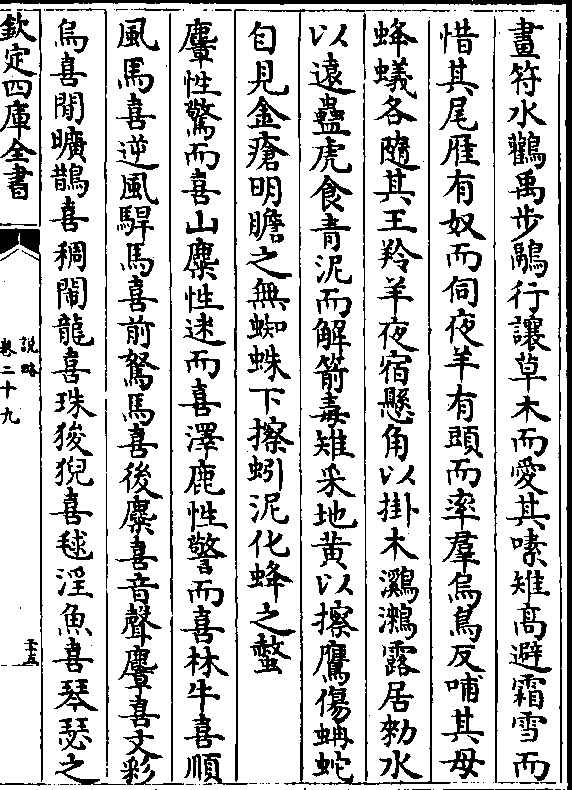 畫符水鸛禹步鷊行讓草木而愛其嗉雉高避霜雪而
惜其尾雁有奴而伺夜羊有頭而率羣烏鳥反哺其母
蜂蟻各隨其王羚羊夜宿懸角以掛木鸂鶒露居勑水
以遠蠱虎食青泥而解箭毒雉采地黄以擦鷹傷蚺蛇
自見金瘡明膽之無蜘蛛下擦蚓泥化蜂之螫
麞性驚而喜山麋性迷而喜澤鹿性警而喜林牛喜順
風馬喜逆風駻馬喜前駑馬喜後麋喜音聲麞喜文彩
烏喜閒曠鵲喜稠鬧龍喜珠狻猊喜毬淫魚喜琴瑟之
欽定四庫全書
說略
卷二十九
三五